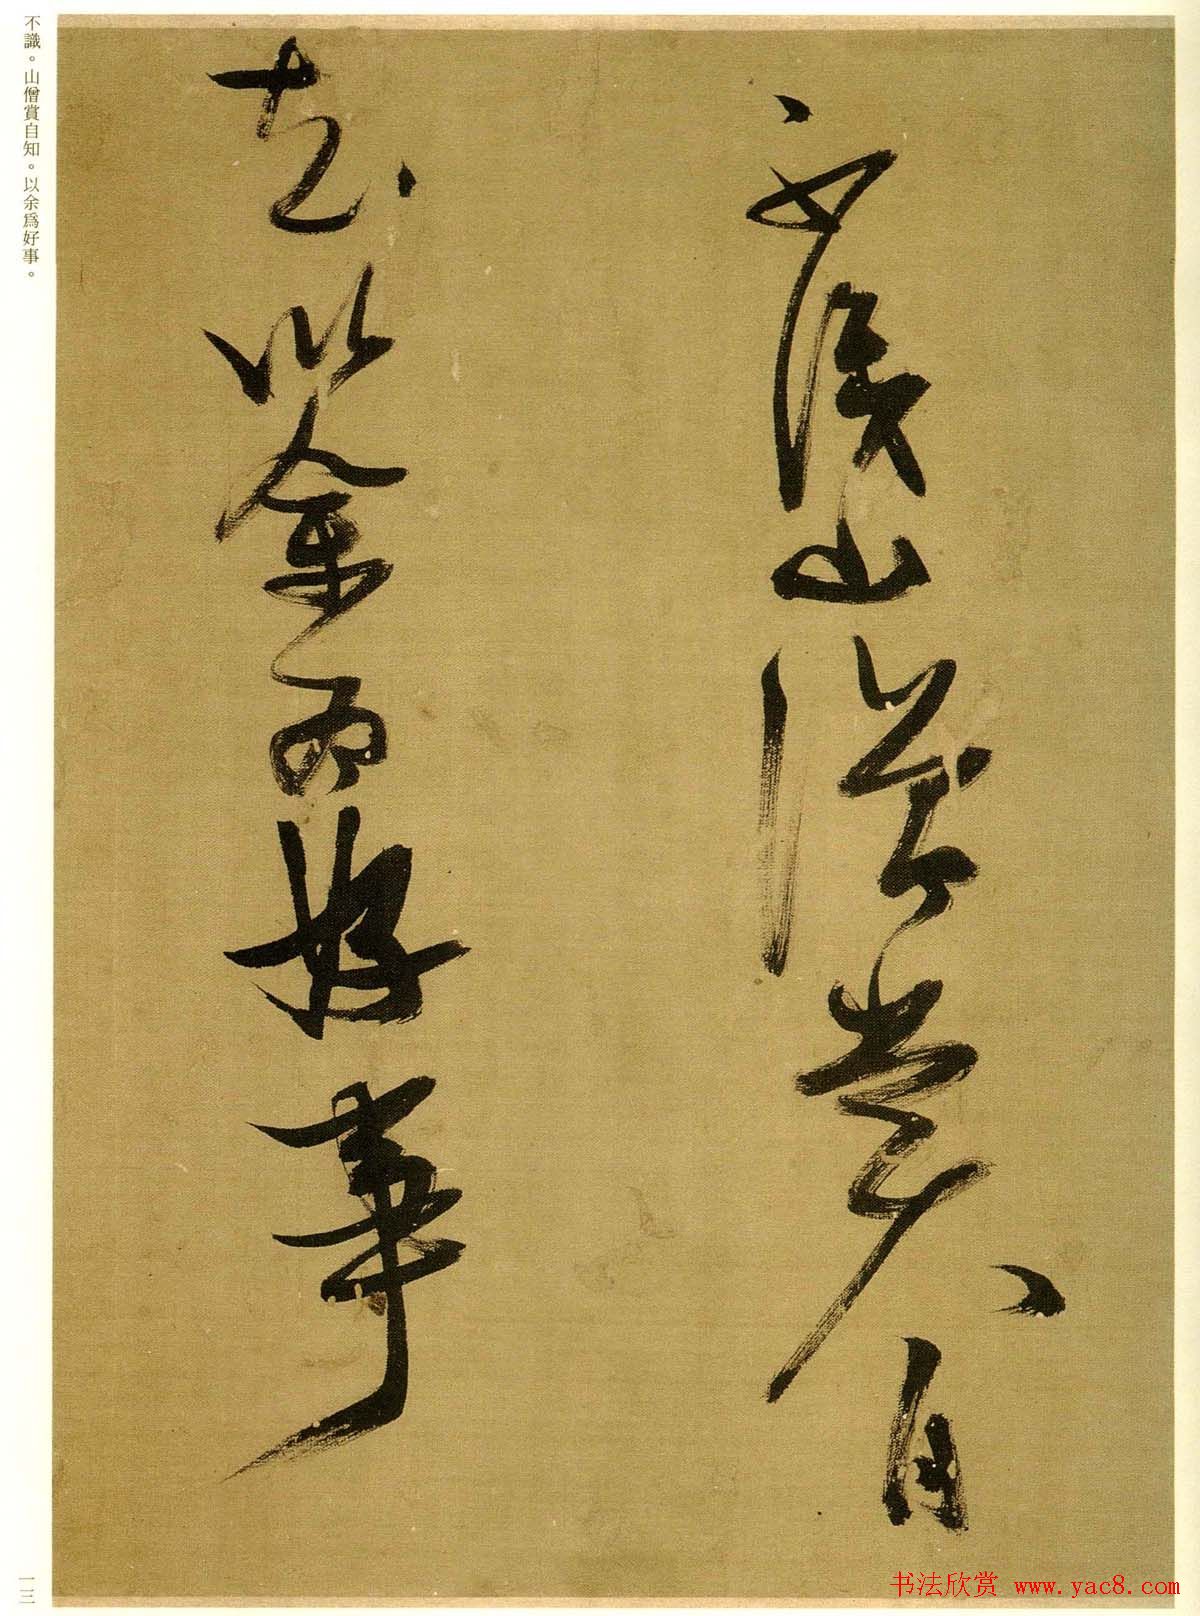 不識山僧賞自
知以余為好事
不識。山僧賞自知。以余為好事。
一三
书法欣赏 www.yac8.com